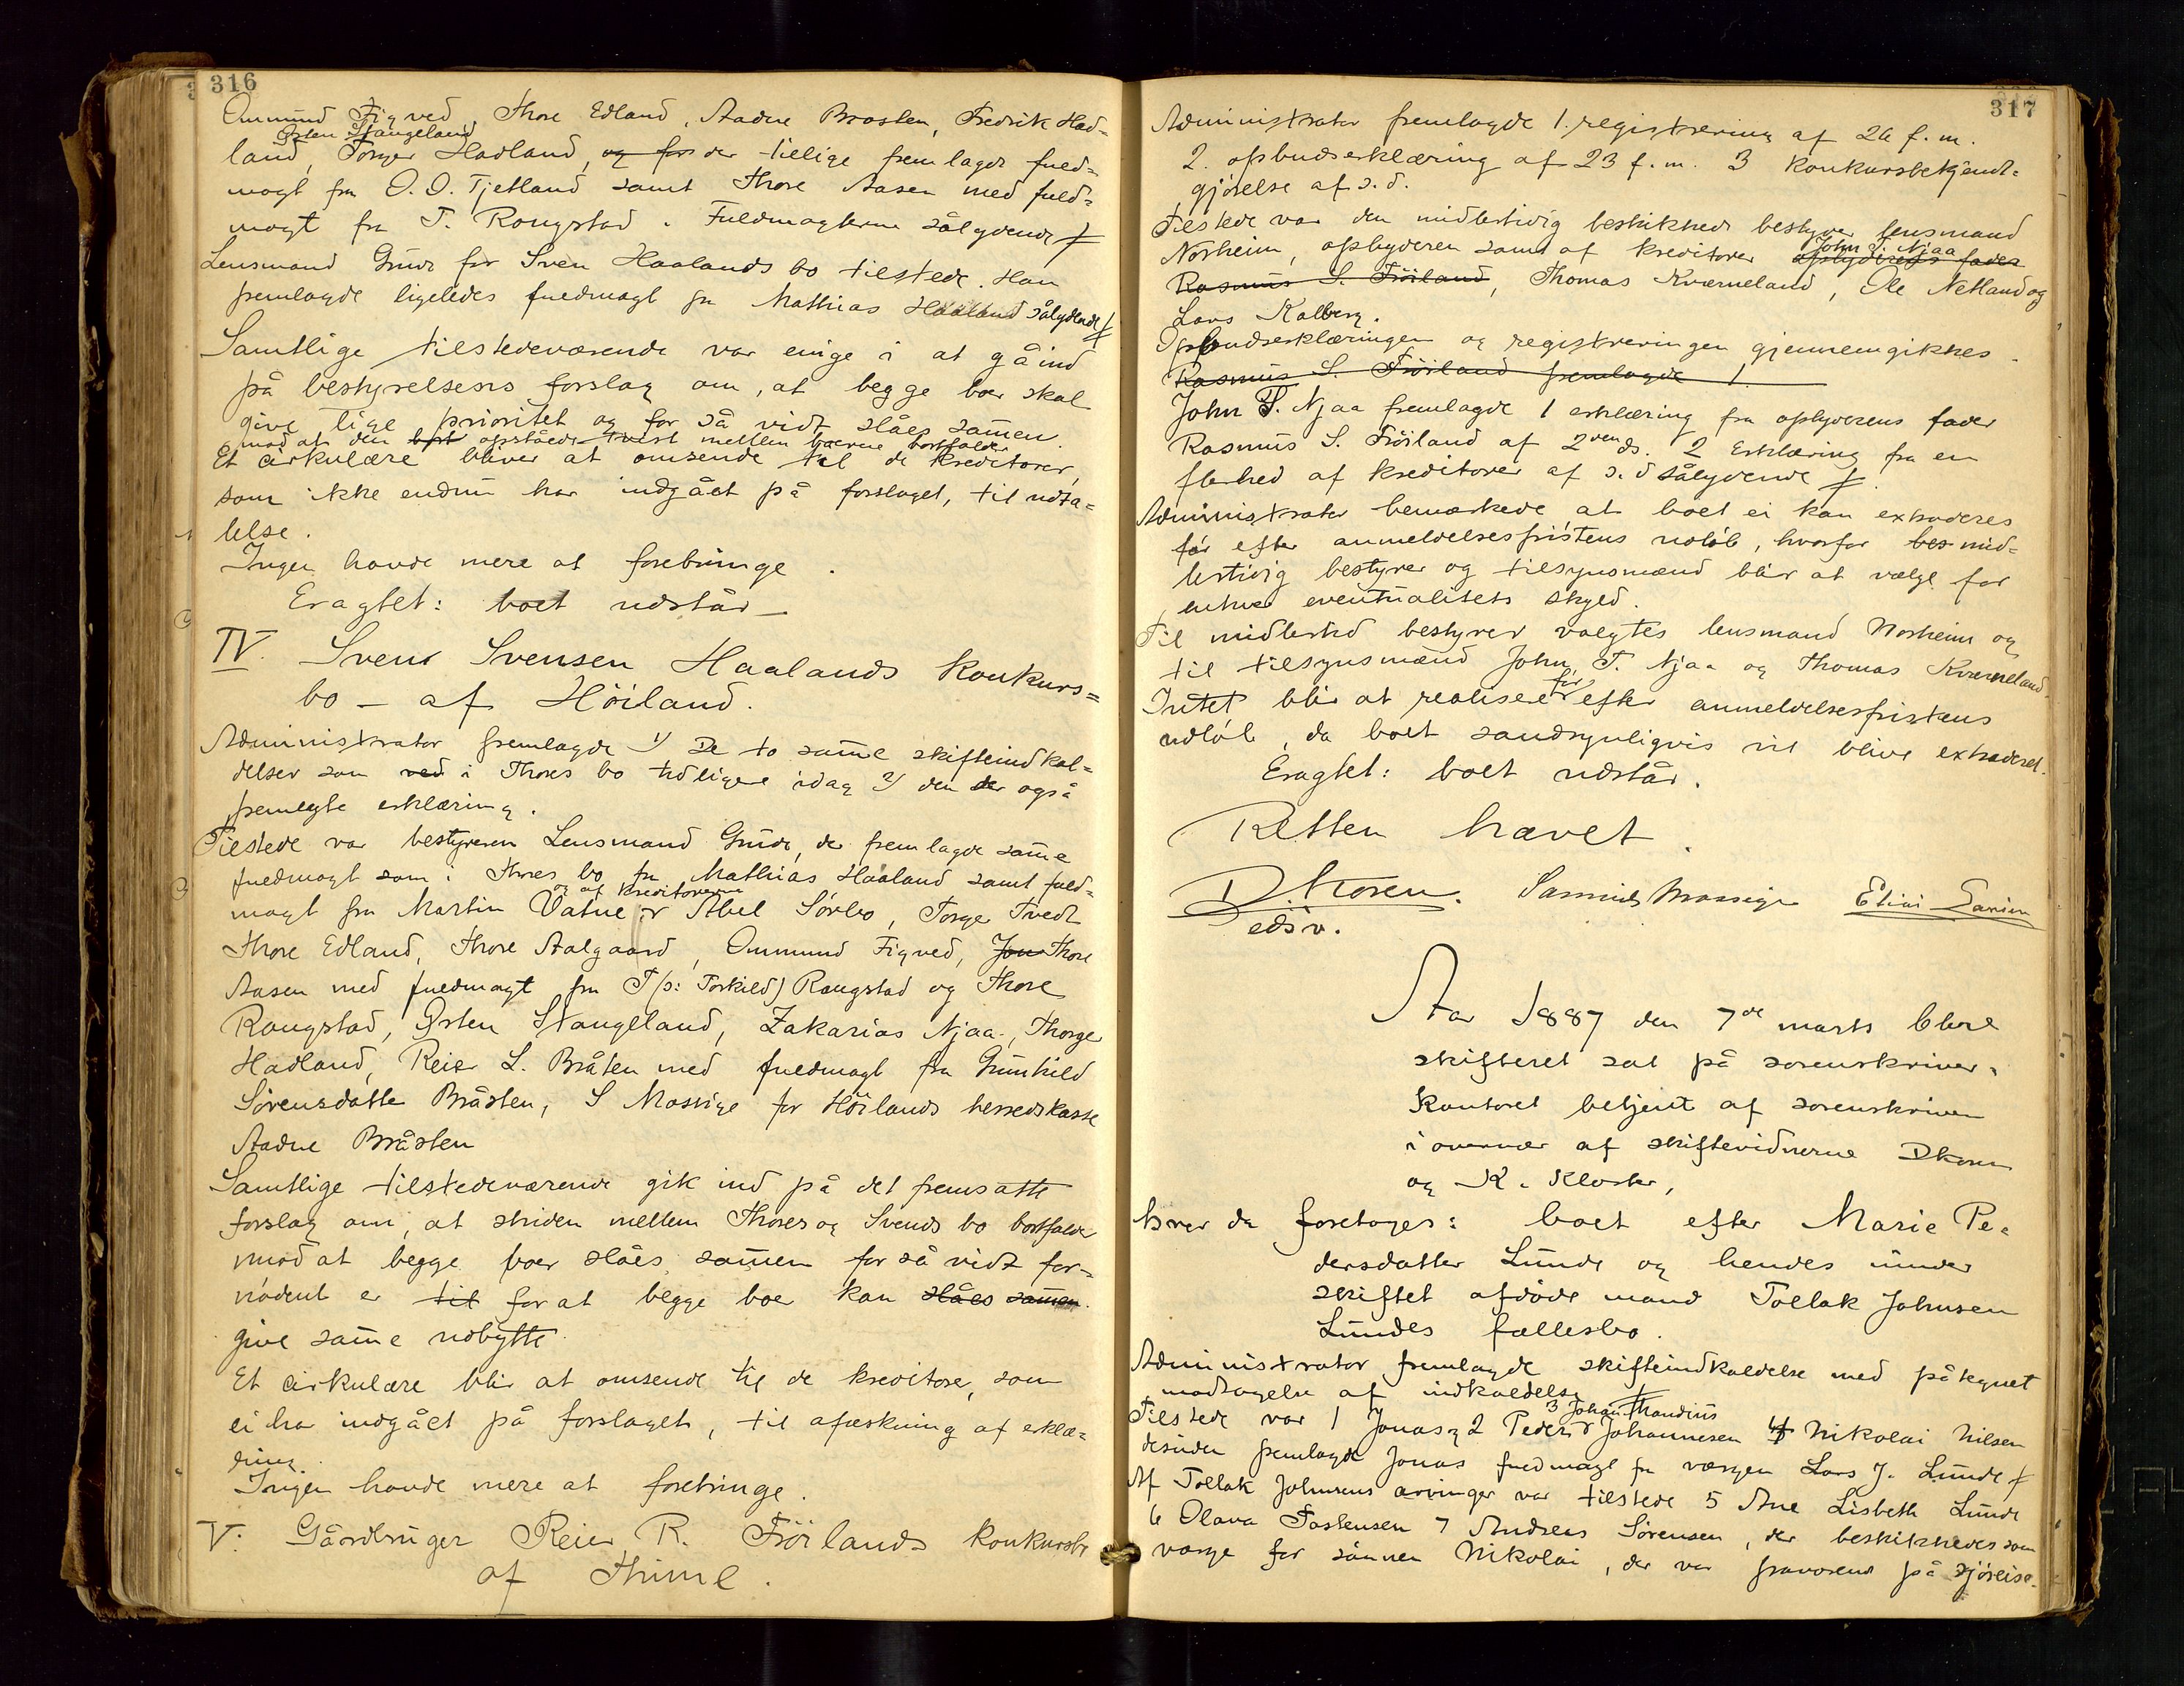 316
Ommund Figved, Thore Edland, Aadne Braasten, Fredrik Had=
Østen Stangeland
land, Torger Hadland, og for der tillige fremlagde fuld=
magt fra O. O. Tjetland samt Thore Aasen med fuld=
magt fra T. Rongstad. Fuldmagterne sålydende ⨍
Lensmand Grude for Sven Haalands bo tilstede. Han
fremlagde ligeledes fuldmagt fra Mathias Haaland sålydende ⨍
Samtlige tilstedeværende var enige i at gå ind
på bestyrelsens forslag om, at begge boer skal
give lige prioritet og for så vidt slåes samen.
mod at den opståede tvist mellem boerne bortfalder
Et cirkulære bliver at omsende til de kreditorer,
som ikke endnu har indgået på forslaget, til udta=
lelse.
Ingen havde mere at forebringe.
Eragtet: boet udstår
IV. Svend Svensen Haalands konkurs=
bo – af Höiland.
Administrator fremlagde 1) De to same skifteindkal=
delser som ved i Thores bo tidligere idag 2) den der også
fremlagte erklæring.
Tilstede var bestyreren Lensmand Grude, der fremlagde same
fuldmagt som i Thores bo fra Mathias Haaland samt fuld=
og af kreditorerne
magt fra Martin Vatne Abel Sörbo, Torger Tvedt
Thore Edland, Thore Aalgaard, Ommund Figved, Jon Thore
Aasen med fuldmagt fra T (ɔ: Torkild) Rongstad og Thore
Rongstad, Østen Stangeland, Zakarias Njaa, Thorger
Hadland, Reier L. Bråten med fuldmagt fra Gunhild
Sörensdatter Bråsten, S Mossige for Höilands herredskasse
Aadne Bråsten
Samtlige tilstedeværende gik ind på det fremsatte
forslag om, at striden mellem Thores og Svends bo bortfalder
mod at begge boer slåes samen for så vidt for=
nödent er til for at begge boer kan slåes samen.
give same udbytte.
Et cirkulære blir at omsende til de kreditorer, som
ei har indgået på forslaget, til afæskning af erklæ=
ring.
Ingen havde mere at forebringe.
V. Gårdbruger Reier R. Fröilands konkursbo
af Thime.
317
Administrator fremlagde 1. registrering af 26 f.m.
2. opbudserklæring af 23 f.m. 3 konkursbekjendt=
gjörelse af s.d.
Tilstede var den midlertidig beskikkede bestyrer lensmand
John T. Njaa
Norheim, opbyderen samt af kreditorer opbyderens fader
Rasmus S. Fröiland, Thomas Kværneland, Ole Netland og
Lars Kalberg.
Opbudserklæringen og registreringen gjennemgikkes.
Rasmus S. Fröiland fremlagde 1.
John T. Njaa fremlagde 1 erklæring fra opbyderens fader
Rasmus S. Fröiland af 2den ds. 2 Erklæring fra en
flerhed af kreditorer af s.d sålydende ⨍.
Administrator bemærkede at boet ei kan extraderes
för efter anmeldelsesfristens udlöb, hvorfor bes mid=
lertidig bestyrer og tilsynsmænd blir at vælge for
enhver eventualitets skyld.
Til midlertid bestyrer valgtes lensmand Norheim og
til tilsynsmænd John T. Njaa og Thomas Kværneland.
för
Intet blir at realisere efter anmeldelsesfristens
udlöb, da boet sandsynligvis vil blive extraderet.
Eragtet: boet udstår.
Retten hævet.
D. Koren. Samuel Mossige Elias Larsen
edsv.
Aar 1887 den 7de marts blev
skifteret sat på sorenskriver=
kontoret betjent af sorenskriveren
i overvær af skiftevidnerne DKoren
og K. Kloster,
hvor da foretoges: boet efter Marie Pe=
dersdatter Lunde og hendes under
skiftet afdöde mand Tollak Johnsen
Lundes fællesbo.
Administrator fremlagde skifteindkaldelse med påtegnet
modtagelse af indkaldelse ⨍
3 Johan Thandius
Tilstede var 1 Jonas og 2 Peder Johannesen 4 Nikolai Nilsen
desuden fremlagde Jonas fuldmagt fra værgen Lars J. Lunde ⨍
Af Tollak Johnsens arvinger var tilstede 5 Ane Lisbeth Lunde
6 Olava Tostensen 7 Andreas Sörensen, der beskikkedes som
værge for sönnen Nikolai, der var fraværende på sjöreise.